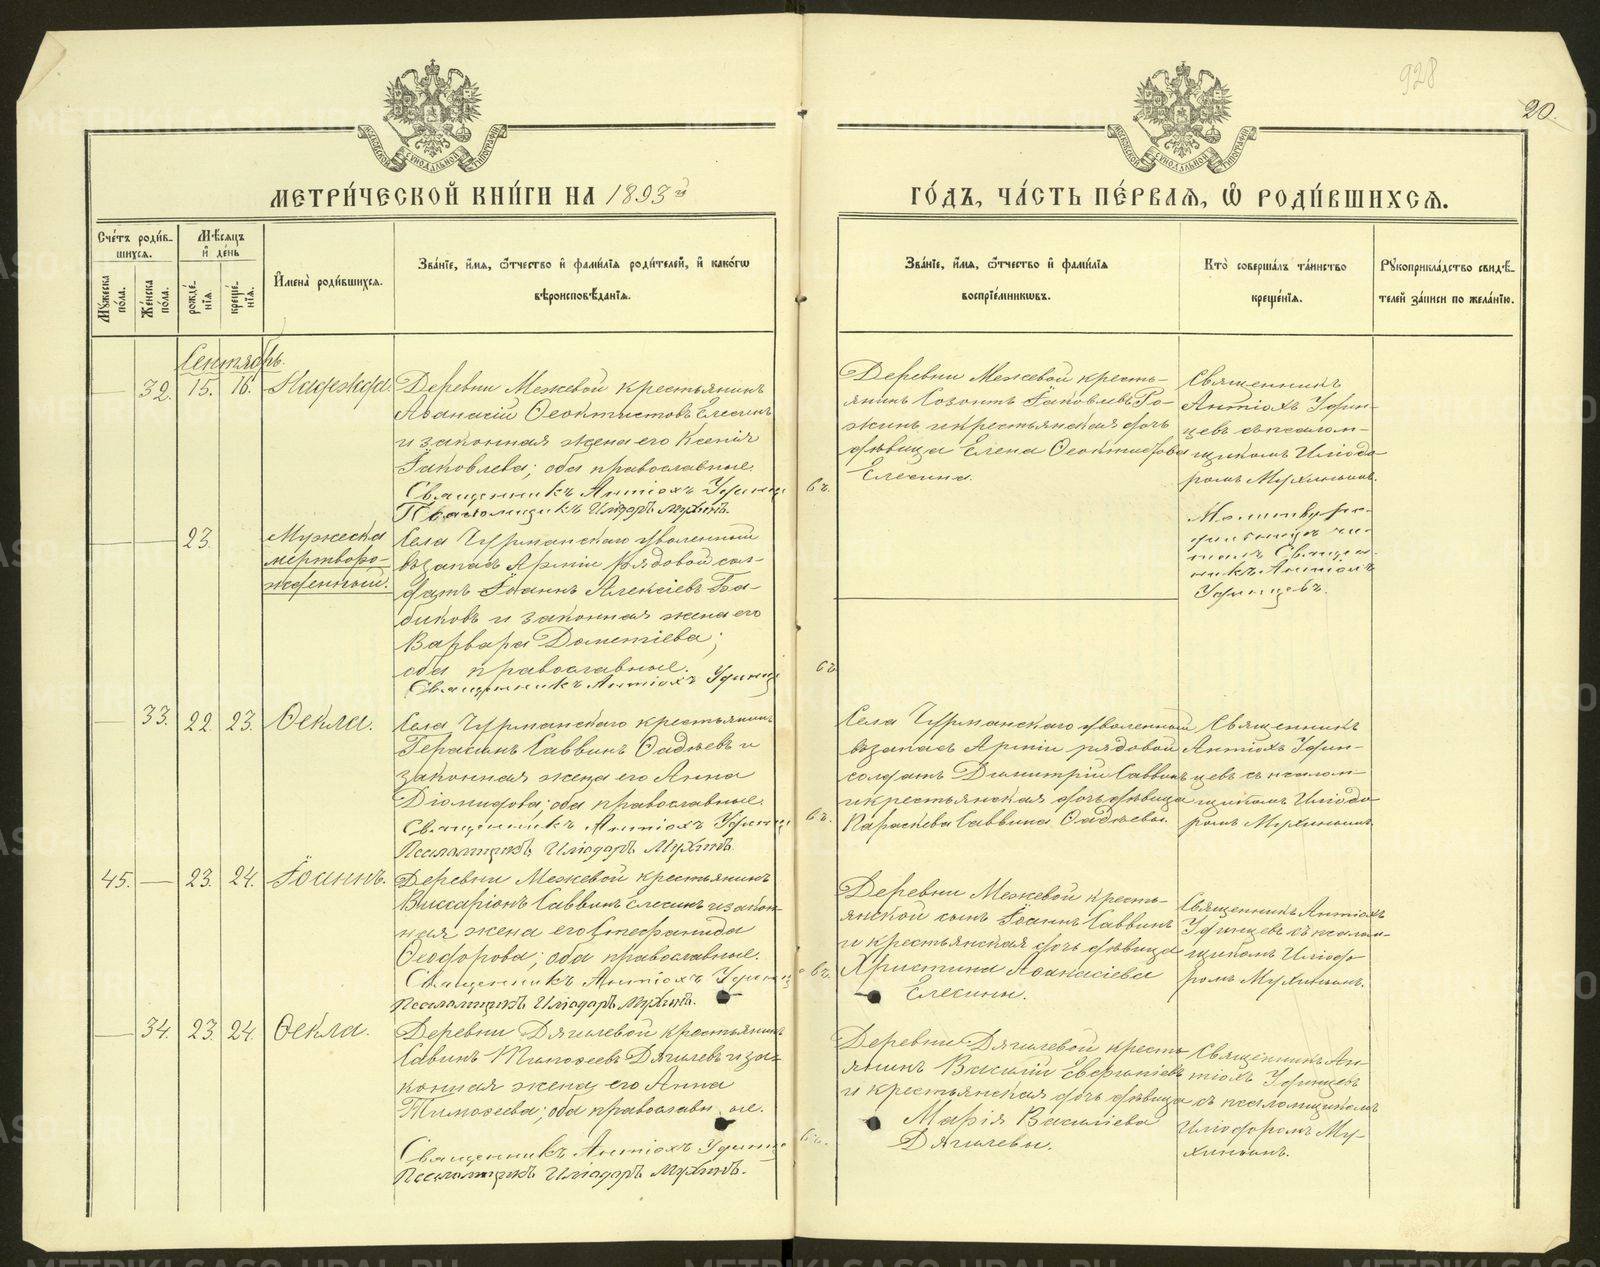 928
20.
МОСКОВСКОЙ СѴНОДАЛЬНОЙ ТИПОГРАФІИ
МОСКОВСКОЙ СѴНОДАЛЬНОЙ ТИПОГРАФІИ
МЕТРИ́ЧЕСКОЙ КНИ́ГИ НА 1893й
ГО́ДЪ, ЧА́СТЬ ПЕ́РВАЯ, Ѽ РОДИ́ВШИХСЯ.
Сче́тъ роди́в-
шихся.
Мꙋжеска по́ла.
Же́нска по́ла.
Мѣ́сяцъ
и҆ де́нь
рожде́-
нїя.
креще́-
нїя.
И҆мена̀ роди́вшихся.
Зва́нїе, и҆́мя, ѻ҆́тчество и҆ фами́лїя роди́телей, и҆ како́гѡ
вѣроисповѣ́данїя.
Зва́нїе, и҆́мя, ѻ҆́тчество и҆ фами́лїя
воспрїе́мникѡвъ.
Кто̀ соверша́лъ та́инство
креще́нїя.
Рꙋкоприкла́дство свидѣ́-
телей за́писи по жела́нїю.
Сентябрь.
— 32. 15. 16. Надежда.
Деревни Межевой крестьянинъ
Аѳанасій Ѳеоктистовъ Елесинъ
и законная жена его Ксенія
Іаковлева; оба православные.
Священникъ Антіохъ Удинце
Псаломщикъ Иліодоръ Мухинъ.
Деревни Межевой кресть-
янинъ Созонтъ Іаковлевъ Ро-
жинъ и крестьянская дочь
дѣвица Елена Ѳеоктистова
Елесина.
Священникъ
Антіохъ Удин-
цевъ съ псалом-
щикомъ Иліодо-
ромъ Мухинымъ.
въ.
— — 23.
Мужеска
мертворо-
жденный.
Села Чурманскаго уволенный
въ запасъ Арміи рядовой сол-
датъ Іоаннъ Алексіевъ Ба-
биковъ и законная жена его
Варвара Дометіева;
оба православные.
Священникъ Антіохъ Удинце
Молитву ро-
дильницѣ чи-
талъ Священ-
никъ Антіохъ
Удинцевъ.
въ
— 33. 22. 23. Ѳекла.
Села Чурманскаго крестьянинъ
Герасимъ Саввинъ Ѳадѣевъ и
законная жена его Анна
Діомидова; оба православные.
Священникъ Антіохъ Удинце
Псаломщикъ Иліодоръ Мухинъ.
Села Чурманскаго уволенный
въ запасъ Арміи рядовой
солдатъ Димитрій Саввинъ
и крестьянская дочь дѣвица
Параскева Саввина Ѳадѣевы.
Священникъ
Антіохъ Удин-
цевъ съ псалом-
щикомъ Иліодо-
ромъ Мухинымъ.
въ.
45. — 23. 24. Іоаннъ.
Деревни Межевой крестьянинъ
Виссаріонъ Саввинъ Елесинъ и закон-
ная жена его Стефанида
Ѳеодорова; оба православные.
Священникъ Антіохъ Удинц
Псаломщикъ Иліодоръ Мухинъ.
Деревни Межевой кресть-
янской сынъ Іоаннъ Саввинъ
и крестьянская дочь дѣвица
Христина Аѳанасіева
Елесины.
Священникъ Антіохъ
Удинцевъ съ псалом-
щикомъ Иліодо-
ромъ Мухинымъ.
въ.
— 34. 23. 24. Ѳекла.
Деревни Дягилевой крестьянинъ
Савинъ Тимоѳеевъ Дягилевъ и за-
конная жена его Анна
Тимоѳеева; оба православные.
Священникъ Антіохъ Удинце
Псаломщикъ Иліодоръ Мухинъ.
Деревни Дягилевой кресть-
янинъ Василій Евфиміевъ
и крестьянская дочь дѣвица
Марія Василіева
Дягилевы.
Священникъ Ан-
тіохъ Удинцевъ
съ псаломщикомъ
Иліодоромъ Му-
хинымъ.
въ.